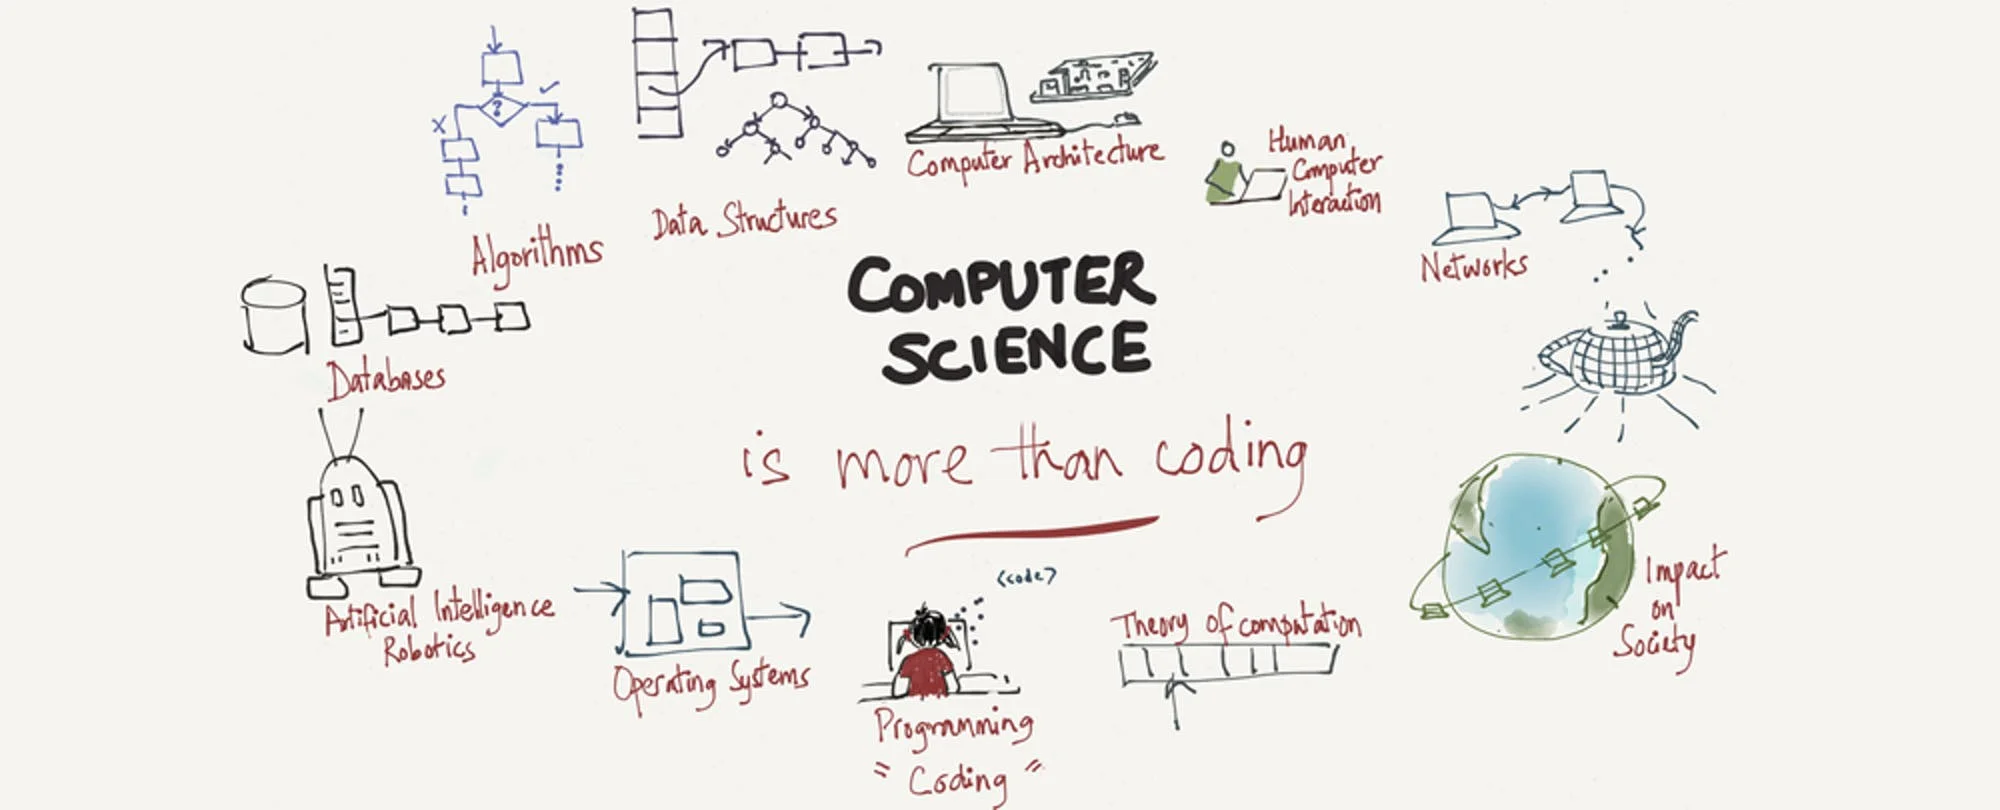 ?
X
Algorithms
Data Structures
Computer Architecture
Human
Computer
Interaction
Networks
Databases
COMPUTER
SCIENCE
is more than coding
Artificial Intelligence
Robotics
Operating Systems
<code>
Programming
" Coding "
Theory of computation
Impact
on
Society